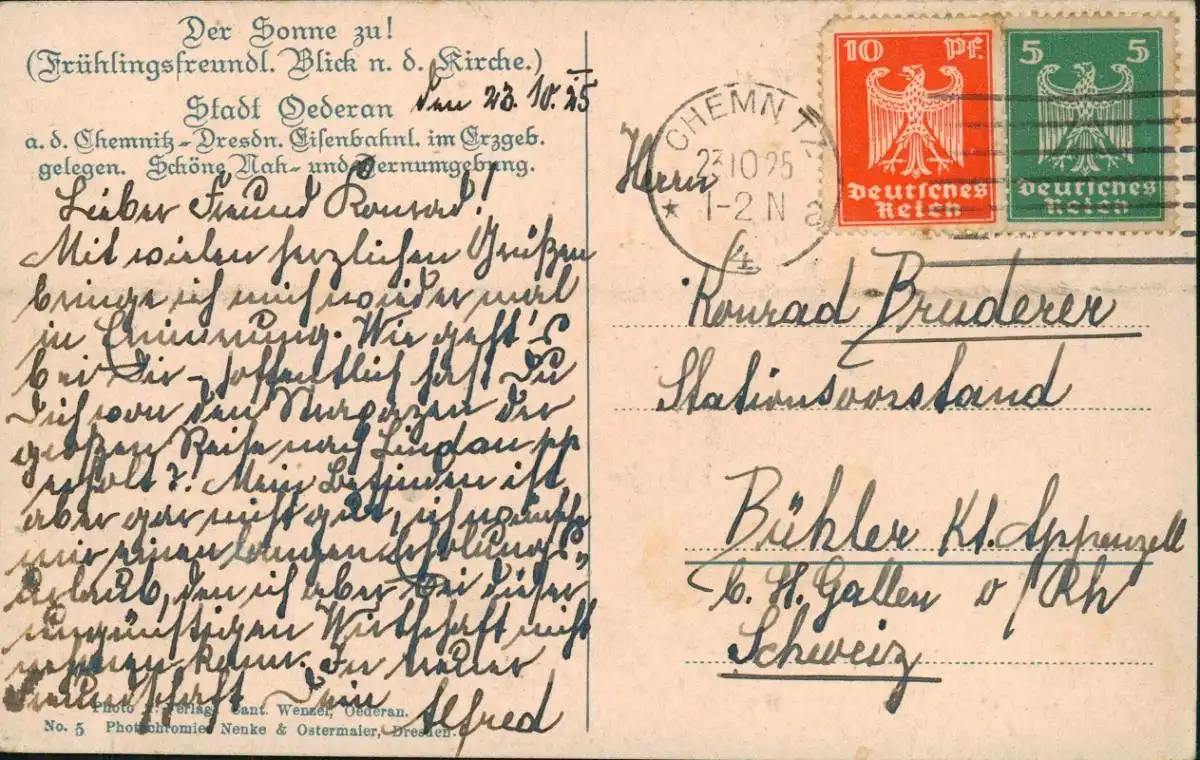 Der Sonne zu!
(Frühlingsfreundl. Blick n. d. Kirche.)
Stadt Oederan
a. d. Chemnitz-Dresdn. Eisenbahnl. im Erzgeb.
gelegen. Schöne Nah- und Fernumgebung.
den 23.10.25
Lieber Freund Konrad!
Mit vielen herzlichen Grüßen
bringe ich mich wieder mal
in Erinnerung. Wie geht's
bei Dir – hoffentlich hast Du
Dich von den Strapazen der
großen Reise nach Lindau pp
erholt?. Mein Befinden ist
aber gar nicht gut, ich wünschte
mir einen langen Erholungs-
urlaub, den ich aber bei dieser
ungünstigen Wirtschaft nicht
nehmen kann. In treuer
Freundschaft Dein
Alfred
Photo u. Verlag: Sant. Wenzel, Oederan.
No. 5 Photochromie, Nenke & Ostermaier, Dresden.
CHEMNITZ
23.10.25
1-2 N
* a
4
10 Pf.
Deutsches
Reich
5 5
Deutsches
Reich
Herrn
Konrad Bruderer
Stationsvorstand
Bühler Kt. Appenzell
b. St. Gallen a/Rh
Schweiz